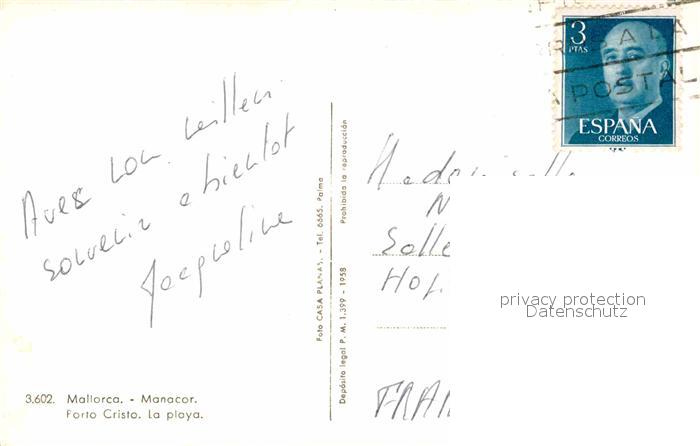 3
PTAS
ESPAÑA
CORREOS
POSTAL
Avec mon meilleur
souvenir a bientot
Jacqueline
Foto CASA PLANAS. - Tel. 6665. Palma
Depósito legal P. M. 1.399 - 1958
Prohibida la reproducción
Salle
FRAN
privacy protection
Datenschutz
3.602. Mallorca. - Manacor.
Porto Cristo. La playa.